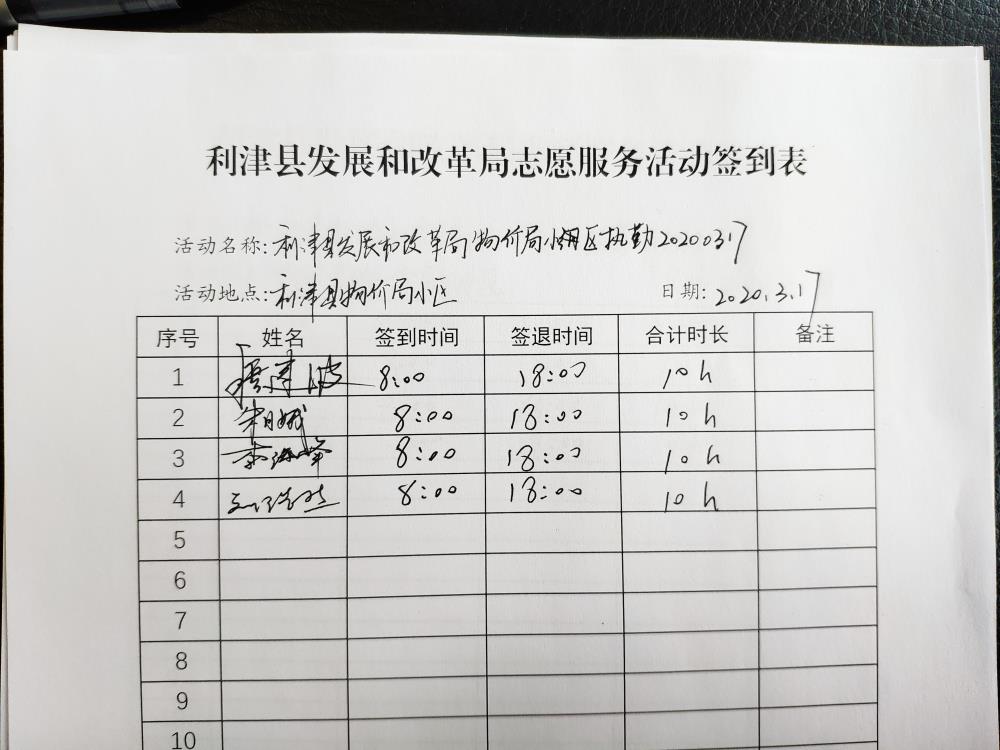 利津县发展和改革局志愿服务活动签到表
活动名称:利津县发展和改革局物价局小区执勤20200317
活动地点:利津县物价局小区 日期:2020.3.17
序号 姓名 签到时间 签退时间 合计时长 备注
1 8:00 18:00 10h
2 8:00 18:00 10h
3 8:00 18:00 10h
4 8:00 18:00 10h
5
6
7
8
9
10